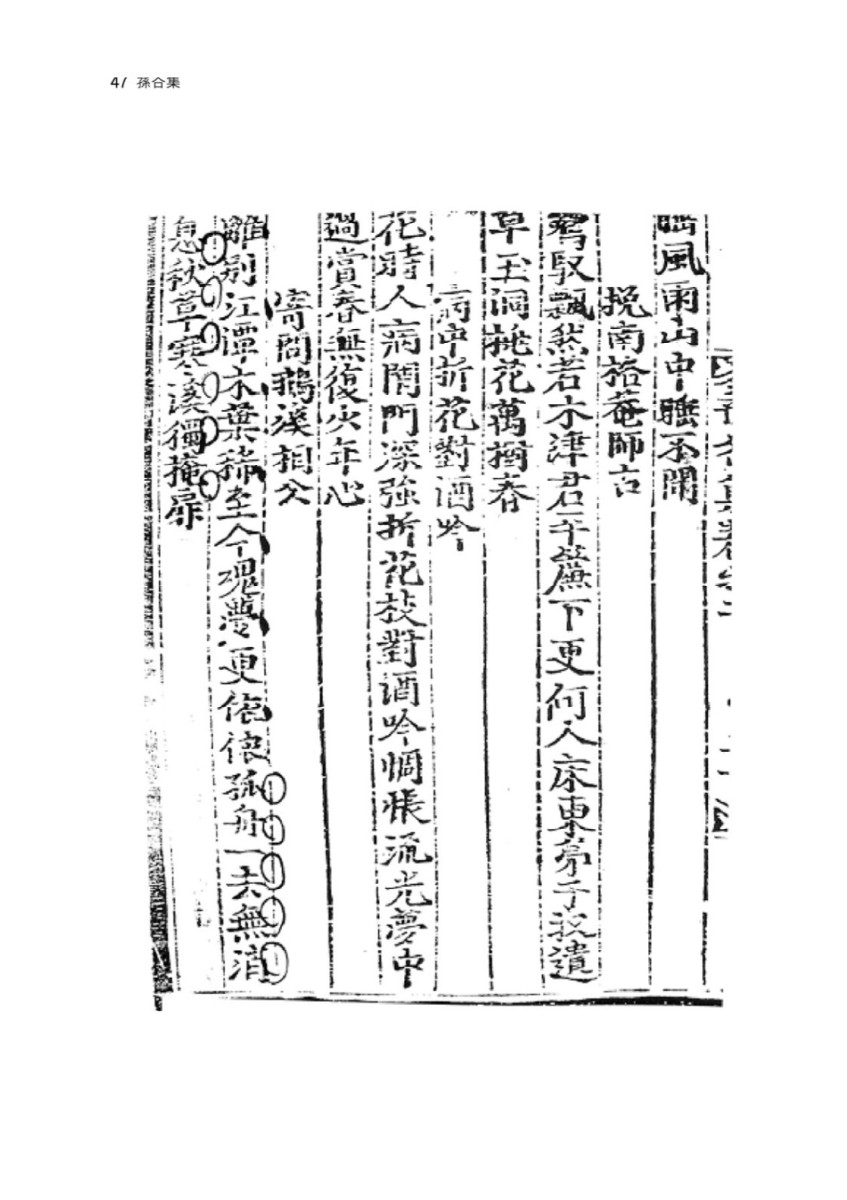 47 孫合集
睡風雨山中睡不
挽南格菴師古
鸞馭飄然若木津君平簾下更何人床東弟子收遺
草玉洞桃花萬樹春
病中折花對酒吟
花時人病閉門深強折花枝對酒吟惆悵流光夢中
過賞春無復少年心
寄問鵝溪相公
離別江潭木葉稀至今魂夢更依依孤舟一去無消
息秋草寒溪獨掩扉